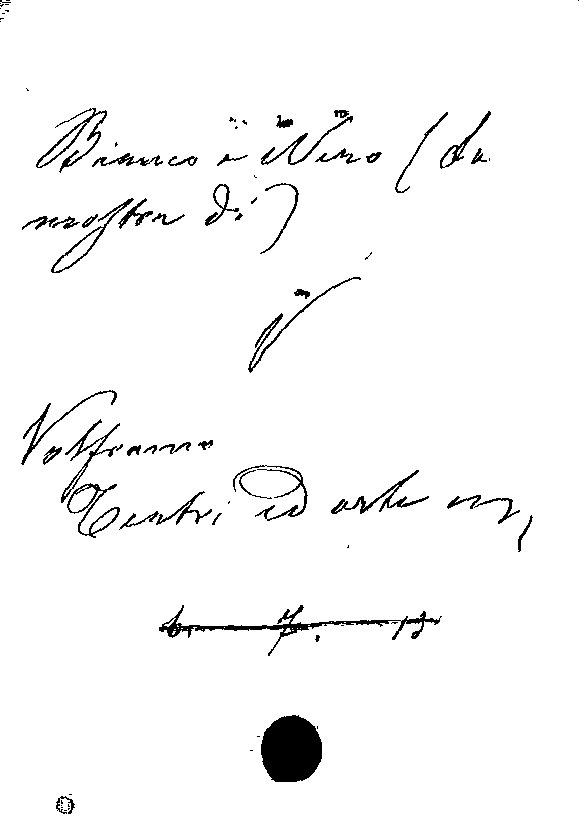 Bianco e Nero (La
mostra di)
V
Volframo
Teatri ed arte
6. 7. 13